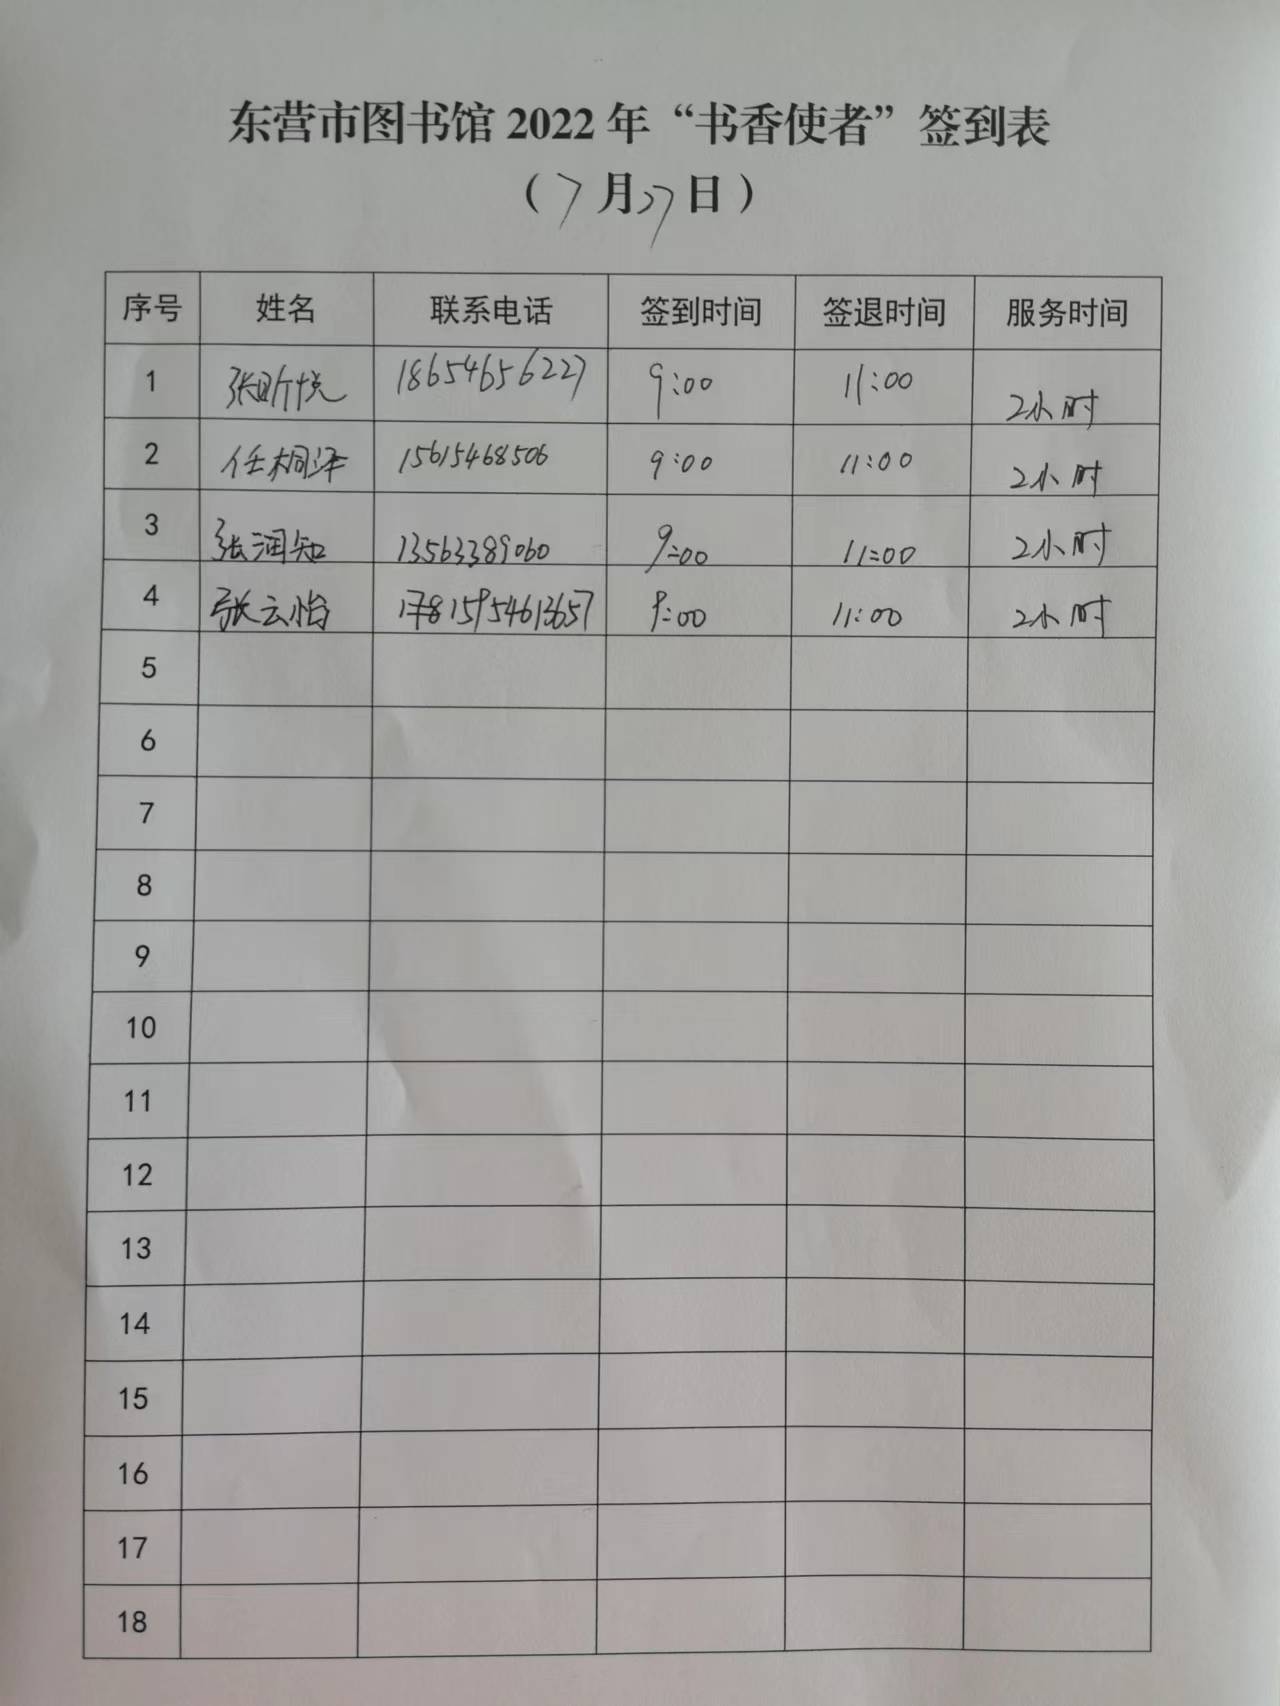 东营市图书馆 2022 年 “书香使者” 签到表
（7月27日）
序号 姓名 联系电话 签到时间 签退时间 服务时间
1 张昕悦 18654656227 9:00 11:00 2小时
2 任桐泽 15615468506 9:00 11:00 2小时
3 张润知 13563389060 9:00 11:00 2小时
4 张云怡 9:00 11:00 2小时
5
6
7
8
9
10
11
12
13
14
15
16
17
18